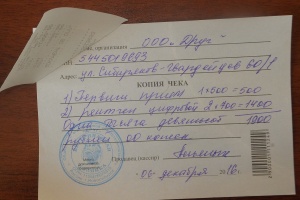 организация ООО "Друг"
ИНН 5445019293
Адрес ул. Сибиряков-Гвардейцев 60/1
КОПИЯ ЧЕКА
1) Первичн прием 1×500=500
2) рентген цифровой 2×700=1400
Одна тысяча девятьсот 1900
рублей 00 копеек
Продавец (кассир)
06 декабря 2016г.